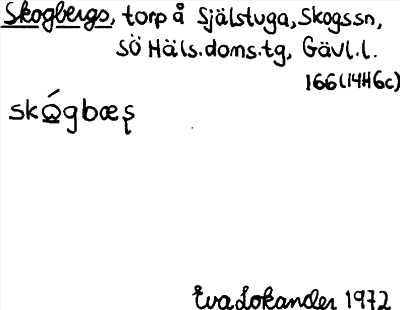 Skogbergs, torp å Själstuga, Skogssn,
SÖ Häls.doms.tg, Gävl.l.
166(14H6c)
skǫ́gbæş
Eva Lokander 1972